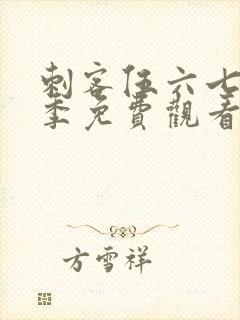 刺客伍六七
季免費觀看
方雪祥